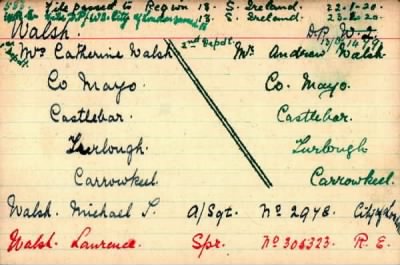 File passed to Region 18. S. Ireland. 22-1-20.
18. S. Ireland. 23-2-20.
Walsh. D.P. W.2.
Mrs Catherine Walsh 2nd Depdt. Mr Andrew Walsh
Co Mayo Co. Mayo.
Castlebar. Castlebar.
Turlough. Turlough
Carrowkeel. Carrowkeel.
Walsh. Michael A/Sgt. No 2978.
Walsh. Lawrence. Spr. No 306323. R. E.